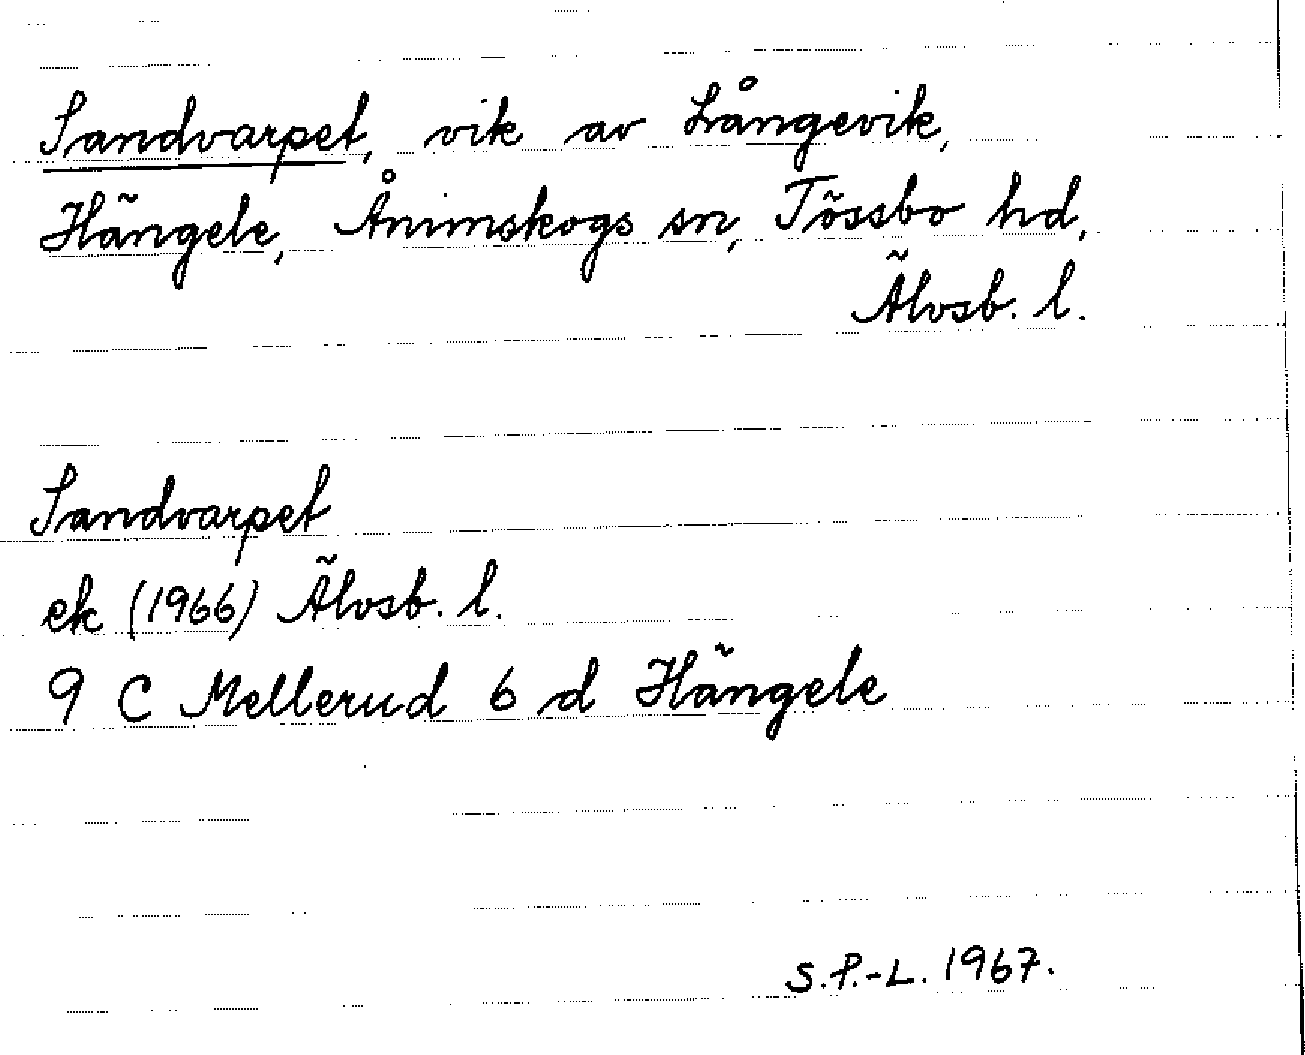 Sandvarpet, vik av Långevik,
Hängele, Ånimskogs sn, Tössbo hd,
Älvsb. l.
Sandvarpet
ek (1966) Älvsb. l.
9 C Mellerud 6 d Hängele
S.P.-L. 1967.